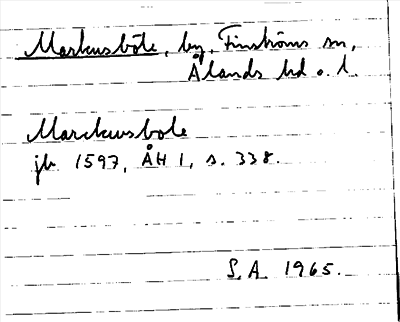 Markusböle, by, Finströms sn,
Ålands hd o. l.
Marckusbole
jb 1597, ÅH 1, s. 338.
S.A. 1965.